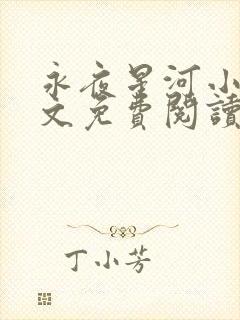 永夜星河小
文免費閱讀
丁小芳